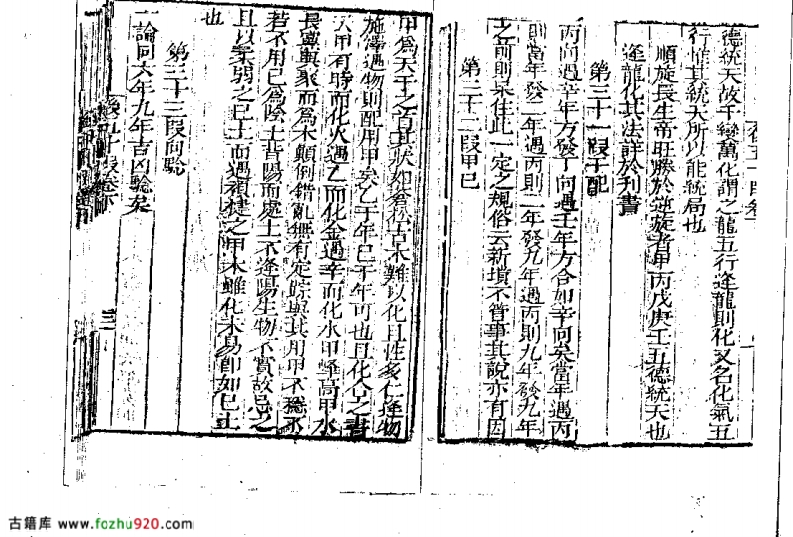 德統天故千變萬化謂之龍五行逢龍則化又名化氣五
行惟其統天所以能統局也
順旋長生帝旺勝於逆旋者甲丙戊庚壬五德統天也
逢龍化其法詳於別書
第三十一段干配
丙向過辛年方發丁向過壬年方合如辛向矣當年遇丙
則當年發二年遇丙則二年發九年遇丙則九年發九年
之前則呆住此一定之規俗云新墳不管事其說亦有因
第三十二段甲己
甲為天干之首其狀如蒼松古木難以化且性多仁逢物
施澤遇物則配用甲矣乙干年己干年可也且化合之書
大甲有時而化火遇乙而化金遇辛而化水甲蜂高甲水
長與輿聚而為木顛倒錯亂無有定蹤與其用甲不穩不
若不用己為陰土背陽而處土不逢陽生物不實故忌之
且以柔弱之己土而過於之甲木雖化未易即如己土
也
第三十三段向驗
一論向六年九年吉凶驗矣
三
古籍库 www.fozhu920.com